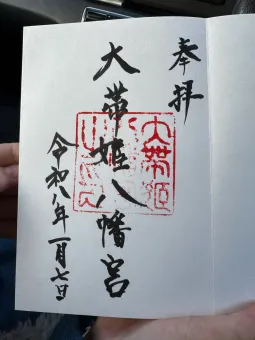 奉拝
大帯姫八幡宮
令和八年一月七日